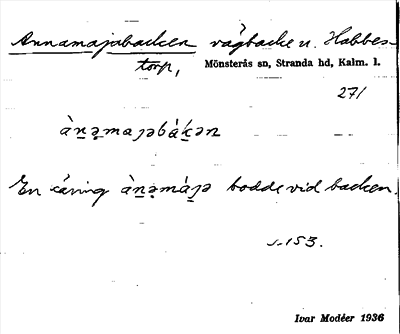 Annamajabacken vägbacke u. Habbes-
torp, Mönsterås sn, Stranda hd, Kalm. l.
271
àn̠ə̠maɟəbák̠ən
En käring àn̠ə̠máɟ̠ə bodde vid backen.
s. 153.
Ivar Modéer 1936